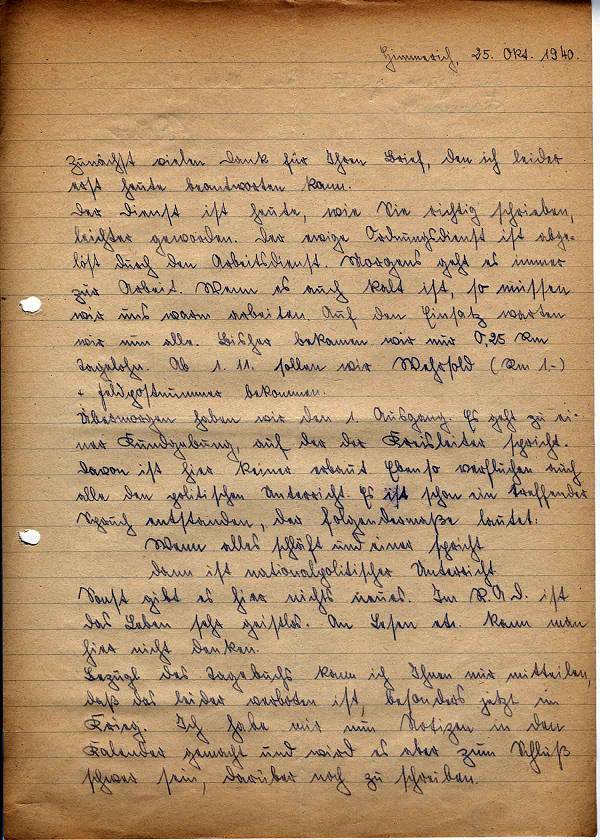 Himmerich, 25. Okt. 1940.
Zunächst vielen Dank für Ihren Brief, den ich leider
erst heute beantworten kann.
Der Dienst ist heute, wie Sie richtig schrieben,
leichter geworden. Der ewige Ordnungsdienst ist abge-
löst durch den Arbeitsdienst. Morgens geht es immer
zur Arbeit. Wenn es auch kalt ist, so müssen
wir uns warm arbeiten. Auf den Einsatz warten
wir nun alle. Bisher bekamen wir nur 0,25 RM
Tagelohn. Ab 1. 11. sollen wir Wehrsold (RM 1.-)
+ Feldpostnummer bekommen.
Übermorgen haben wir den 1. Ausgang. Es geht zu ei-
ner Kundgebung, auf der der Kreisleiter spricht.
Davon ist hier keiner erbaut. Ebenso verfluchen auch
alle den politischen Unterricht. Es ist schon ein treffender
Spruch entstanden, der folgendermaße lautet:
Wenn alles schläft und einer spricht
dann ist nationalpolitischer Unterricht
Sonst gibt es hier nichts neues. Im R.A.D. ist
das Leben sehr geistlos. An Lesen etc. kann man
hier nicht denken.
Bezügl des Tagebuchs kann ich Ihnen nur mitteilen,
daß das leider verboten ist, besonders jetzt im
Krieg. Ich habe mir nun Notizen in den
Kalender gemacht und wird es aber zum Schluß
schwer sein, darüber noch zu schreiben.